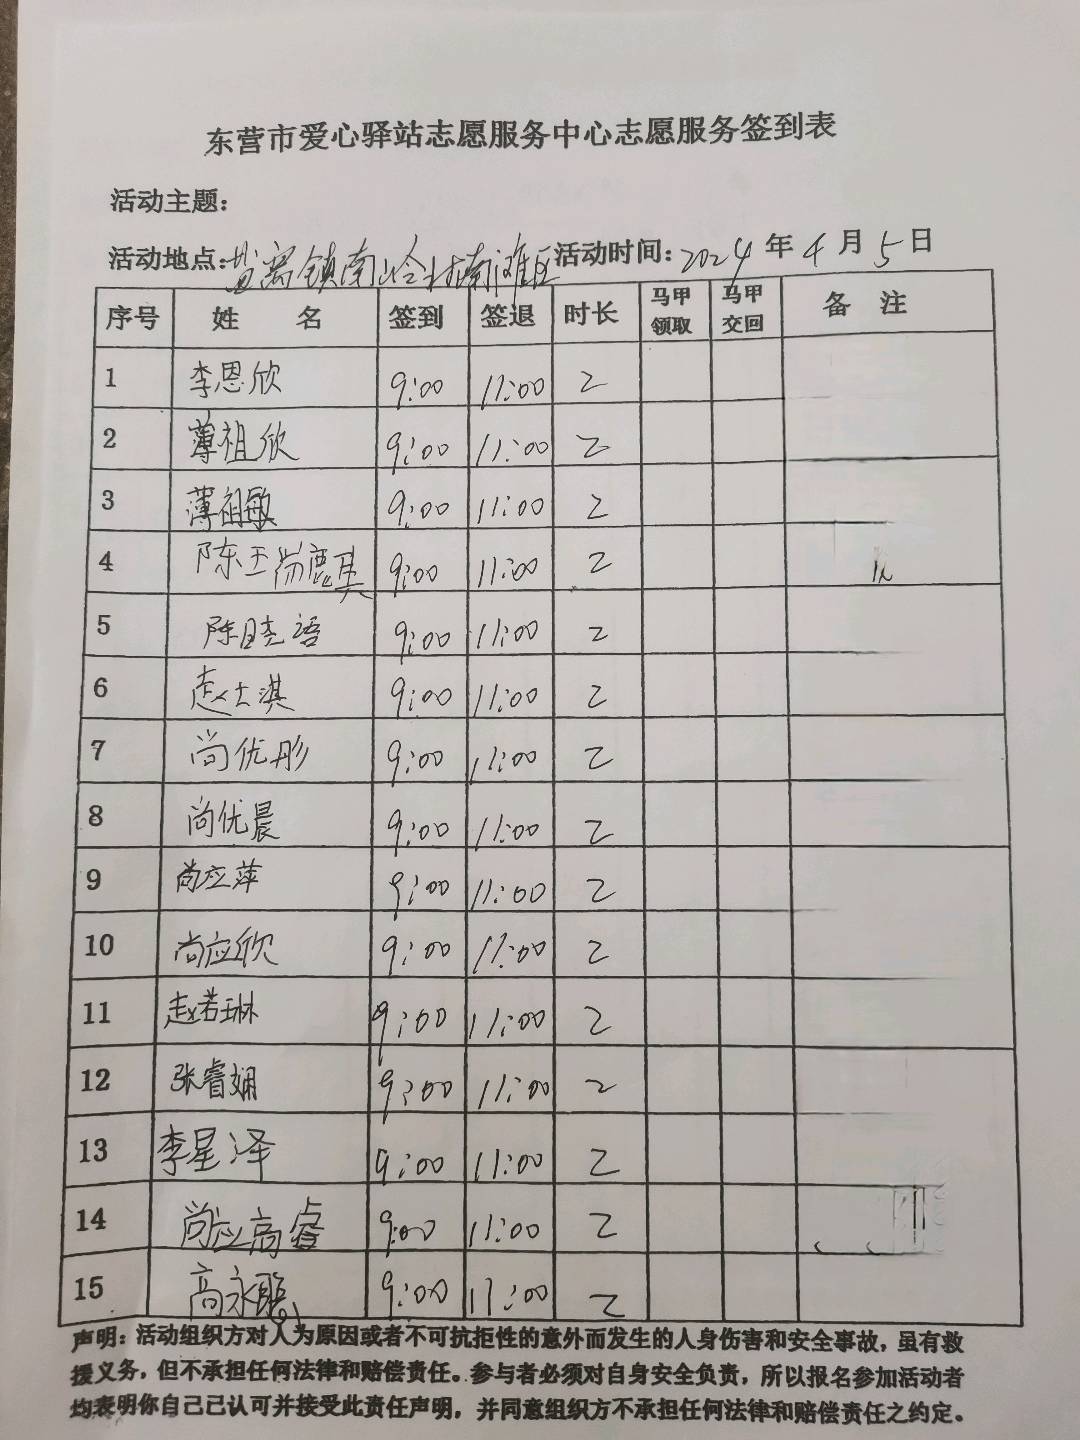 东营市爱心驿站志愿服务中心志愿服务签到表
活动主题：
活动地点：営窝镇南岭村南滩区 活动时间：2024 年 4 月 5 日
序号 姓 名 签到 签退 时长 马甲领取 马甲交回 备 注
1 李恩欣 9:00 11:00 2
2 薄祖欣 9:00 11:00 2
3 薄祖敏 9:00 11:00 2
4 陈玉 尚鹿其 9:00 11:00 2
5 陈晓语 9:00 11:00 2
6 赵士淇 9:00 11:00 2
7 尚优彤 9:00 11:00 2
8 尚优晨 9:00 11:00 2
9 尚应萍 9:00 11:00 2
10 尚应欣 9:00 11:00 2
11 赵若琳 9:00 11:00 2
12 张睿娴 9:00 11:00 2
13 李星泽 9:00 11:00 2
14 尚应高睿 9:00 11:00 2
15 高永 9:00 11:00 2
声明：活动组织方对人为原因或者不可抗拒性的意外而发生的人身伤害和安全事故，虽有救
援义务，但不承担任何法律和赔偿责任。参与者必须对自身安全负责，所以报名参加活动者
均表明你自己已认可并接受此责任声明，并同意组织方不承担任何法律和赔偿责任之约定。